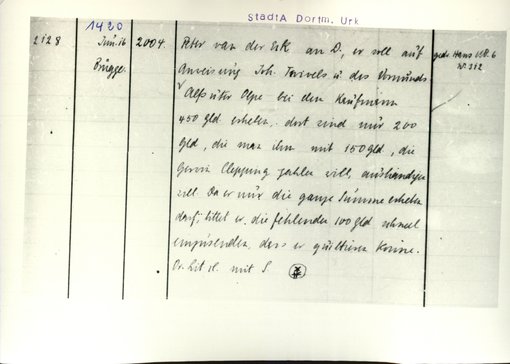 StadtA Dortm. Urk
1420
2128 Juni 16 2004. Peter van der Eck an D., er soll auf gedr. Hans UB. 6
Brügge. Anweisung Joh. u des Ormunds N° 212
Alf suter Olpe bei den Kaufmann
450 gld erheben. dort sind nur 200
gld, die man ihm mit 150 gld, die
Clepping zahlen will, aushändigen
will. Da er nur die ganze Summe erheben
darf, bittet er, die fehlenden 100 gld schnell
einzusenden, dass er quittieren könne.
Or. lit. cl. mit S.